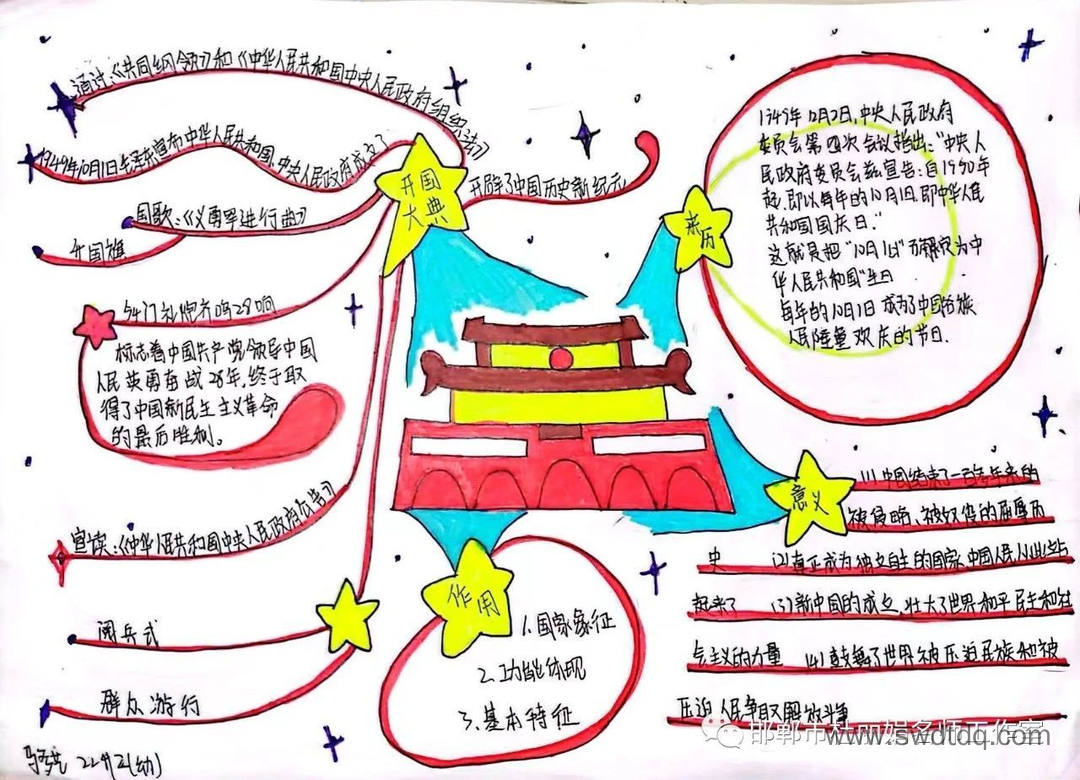 通过:《共同纲领》和《中华人民共和国中央人民政府组织法》
1949年10月1日毛泽东宣布中华人民共和国,中央人民政府成立了
国歌:《义勇军进行曲》
升国旗
54门礼炮齐鸣28响
标志着中国共产党领导中国
人民英勇奋战28年,终于取
得了中国新民主主义革命
的最后胜利。
宣读:《中华人民共和国中央人民政府公告》
阅兵式
群众游行
开国
大典
开辟了中国历史新纪元
来历
1949年12月2日,中央人民政府
委员会第四次会议指出:"中央人
民政府委员会兹宣告:自1950年
起,即以每年的10月1日,即中华人民
共和国国庆日."
这就是把"10月1日"
华人民共和国"生日
每年的10月1日成为了中国各族
人民隆重欢庆的节日.
作用
1.国家象征
2.功能体现
3.基本特征
意义
(1)中国结束了一百多年来的
被侵略、被奴役的屈辱历
史 (2)真正成为独立自主的国家,中国人民从此站
起来了 (3)新中国的成立,壮大了世界和平民主和社
会主义的力量 (4)鼓舞了世界被压迫民族和被
压迫人民争取解放斗争
邯郸市杜丽娟名师工作室
www.swdtdq.com